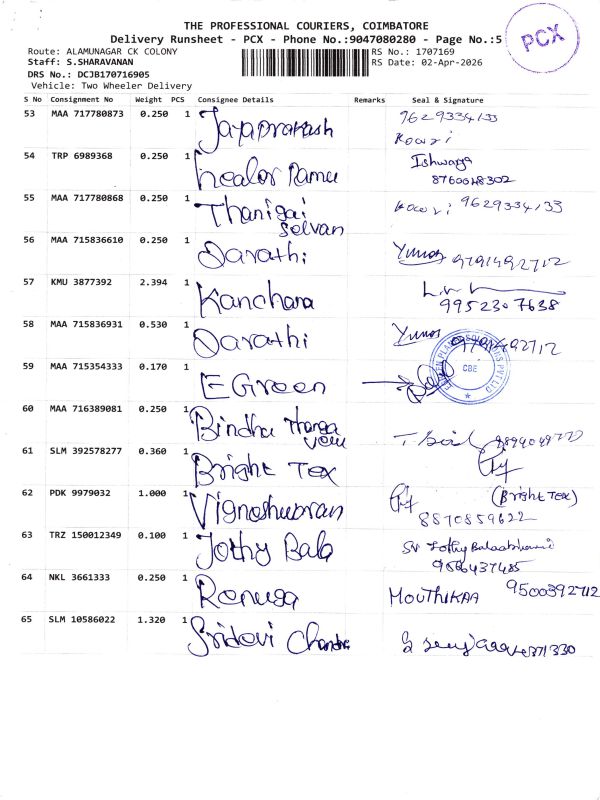 THE PROFESSIONAL COURIERS, COIMBATORE
Delivery Runsheet - PCX - Phone No.:9047080280 - Page No.:5
PCX
Route: ALAMUNAGAR CK COLONY
RS No.: 1707169
Staff: S.SHARAVANAN
RS Date: 02-Apr-2026
DRS No.: DCJB170716905
Vehicle: Two Wheeler Delivery
S No Consignment No Weight PCS Consignee Details Remarks Seal & Signature
53 MAA 717780873 0.250 1 Jayaprakash 9629334133
Kowri
54 TRP 6989368 0.250 1 Ramu Ishwarya
8760048302
55 MAA 717780868 0.250 1 Thanigai Kowri 9629334133
Selvan
56 MAA 715836610 0.250 1 Sarathi 9791492712
57 KMU 3877392 2.394 1 Kanchana
9952307638
58 MAA 715836931 0.530 1 Sarathi 9791492712
59 MAA 715354333 0.170 1 E Green
CBE
60 MAA 716389081 0.250 1 Bindhu Thanga
velu
61 SLM 392578277 0.360 1 Bright Tex
62 PDK 9979032 1.000 1 Vigneshwaran (Bright Tex)
8870859622
63 TRZ 150012349 0.100 1 Jothy Bala
9586437485
64 NKL 3661333 0.250 1 Renuga MOUTHIKAA 9500392712
65 SLM 10586022 1.320 1 Sridevi Chandra